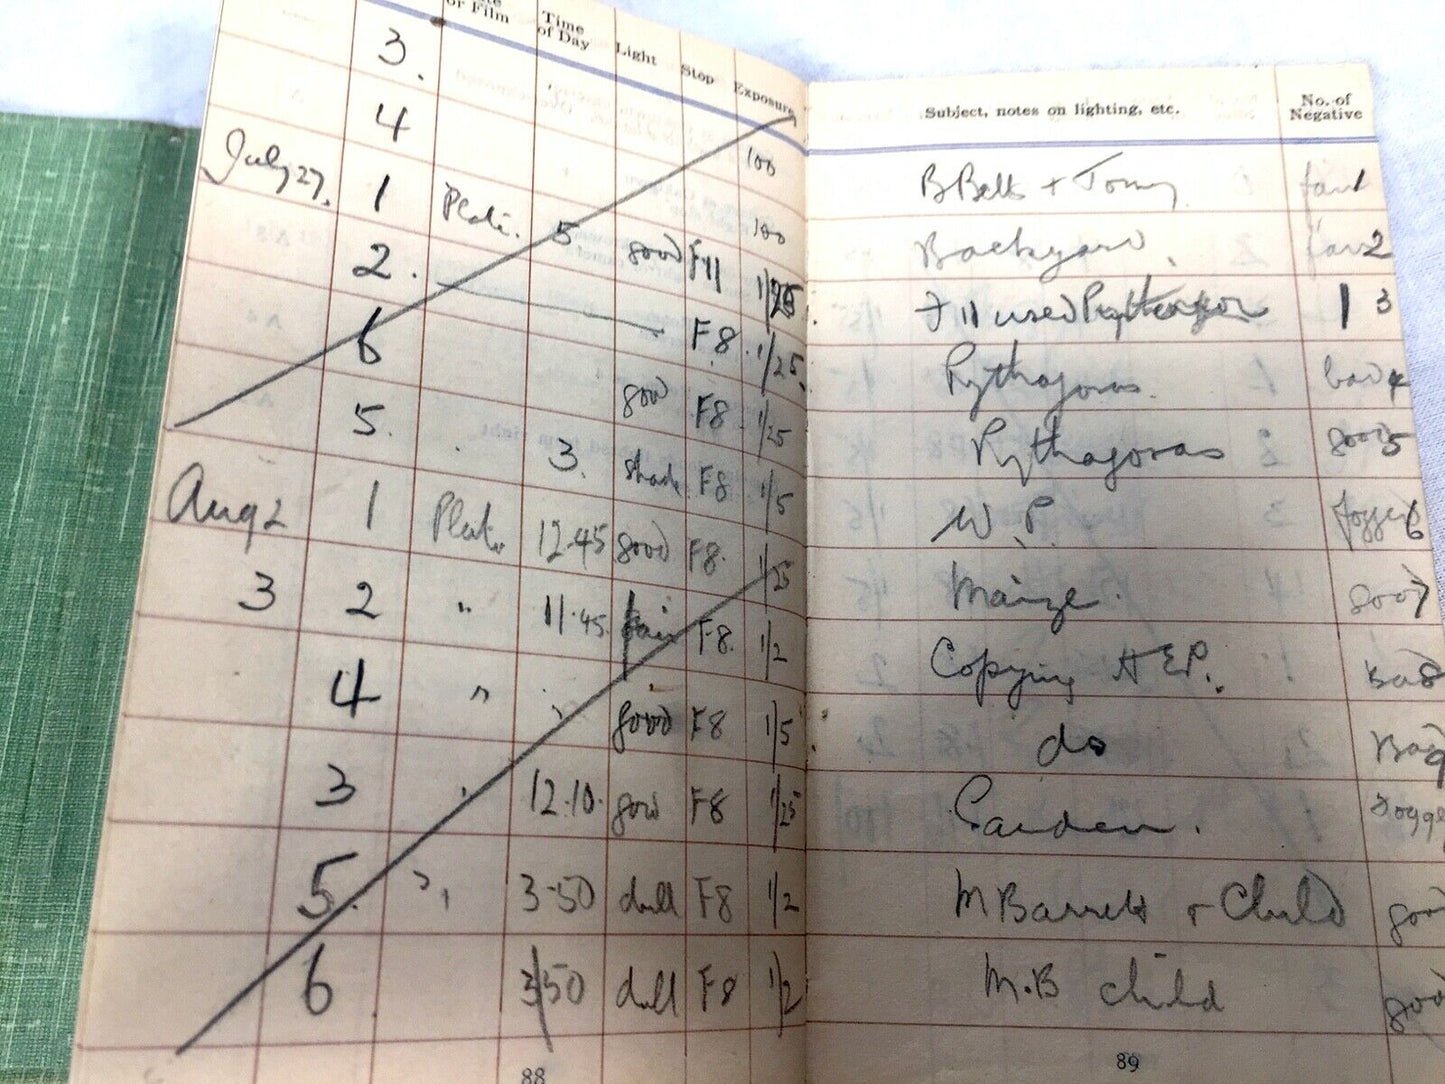 or Film Time of Day Light Stop Exposure Subject, notes on lighting, etc. No. of Negative
3. 100 B Bells + Tomy fair 1
4 100 Backyard. fair 2
July 27. 1 Plate. 5 good F11 1/25 F 11 used 1 3
2. F8 1/25 Pythagoras. bad 4
6 good F8 1/25 Pythagoras good 5
5. 3. shade F8 1/5 W.P. fogged 6
Aug 2 1 Plate 12.45 good F8. 1/25 Maize. good 7
3 2 " 11.45 fair F8. 1/2 Copying H E P. Bad 8
4 " " good F8 1/5 do Bad 9
3 " 12.10. good F8 1/25 Garden. Fogge
5. " 3-50 dull F8 1/2 M Barrett + Child good
6 3/50 dull F8 1/2 M.B child good
88 89